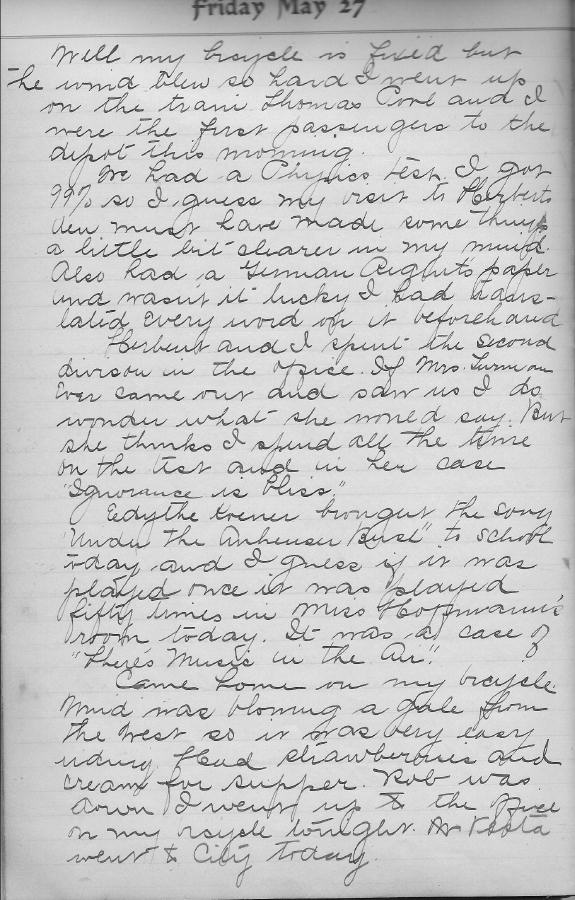 Friday May 27
Well my bicycle is fixed but
the wind blew so hard I went up
on the train Thomas and I
were the first passengers to the
depot this morning.
We had a Physics test. I got
99% so I guess my visit to Herberts
den must have made some things
a little bit clearer in my mind.
Also had a German Sights paper
and wasn't it lucky I had trans-
lated every word of it beforehand
Herbert and I spent the second
divison in the office. If Mrs.
Ever came our and saw us I do
wonder what she would say. But
she thinks I spend all the time
on the test and in her case
"Ignorance is bliss."
Edythe brought the song
"Under the Anheuser Bush" to school
today and I guess if it was
played once it was played
fifty times in Miss Hoffmann's
room today. It was a case of
"There's Music in the Air".
Came home on my bicycle.
Wind was blowing a gale from
the west so it was very easy
riding. Had strawberries and
cream for supper. Rob was
down I went up to the office
on my bicycle tonight.
went to City today.